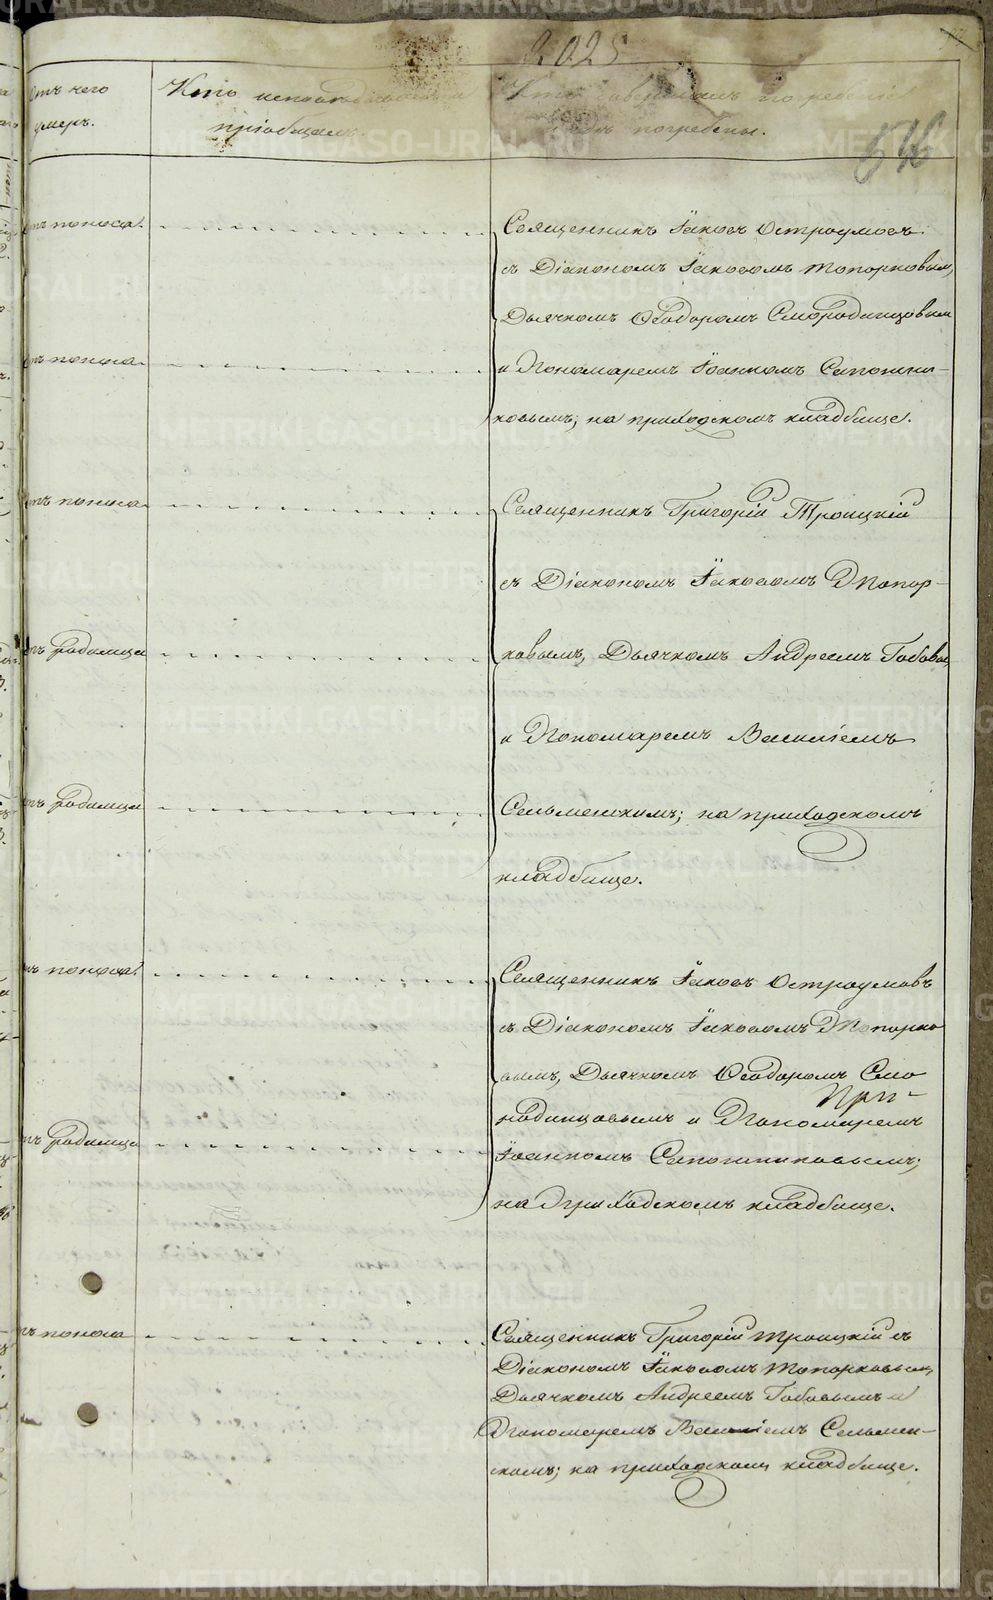 2025
546
Отъ чего
умеръ.
Кто исповѣдывалъ и
пріобщалъ.
Кто совершалъ погребеніе
и гдѣ погребены.
отъ поноса.
Священникъ Іаковъ Остроумовъ
съ Діакономъ Іаковомъ Топорковым,
Дьячкомъ Ѳеодоромъ Смородинцовым
отъ поноса
и Пономаремъ Іоанномъ Сапожни-
ковымъ; на приходскомъ кладбище.
отъ поноса
Священникъ Григорій Троицкій
съ Діакономъ Іаковомъ Топор-
отъ родимца
ковымъ, Дьячкомъ Андреемъ
и Пономаремъ Василіемъ
отъ родимца
Сельменскимъ; на приходскомъ
кладбище.
отъ поноса
Священникъ Іаковъ Остроумовъ
съ Діакономъ Іаковомъ Топорко
вымъ, Дьячкомъ Ѳеодоромъ Смо
родинцовымъ и Пономаремъ
отъ родимца
Іоанномъ Сапожниковымъ;
на Приходскомъ кладбище.
отъ поноса
Священникъ Григорій Троицкій съ
Діакономъ Іаковомъ Топорковым,
Дьячкомъ Андреемъ и
Пономаремъ Василіемъ Сельмен-
скимъ; на приходскомъ кладбище.
METRIKI.GASO-URAL.RU